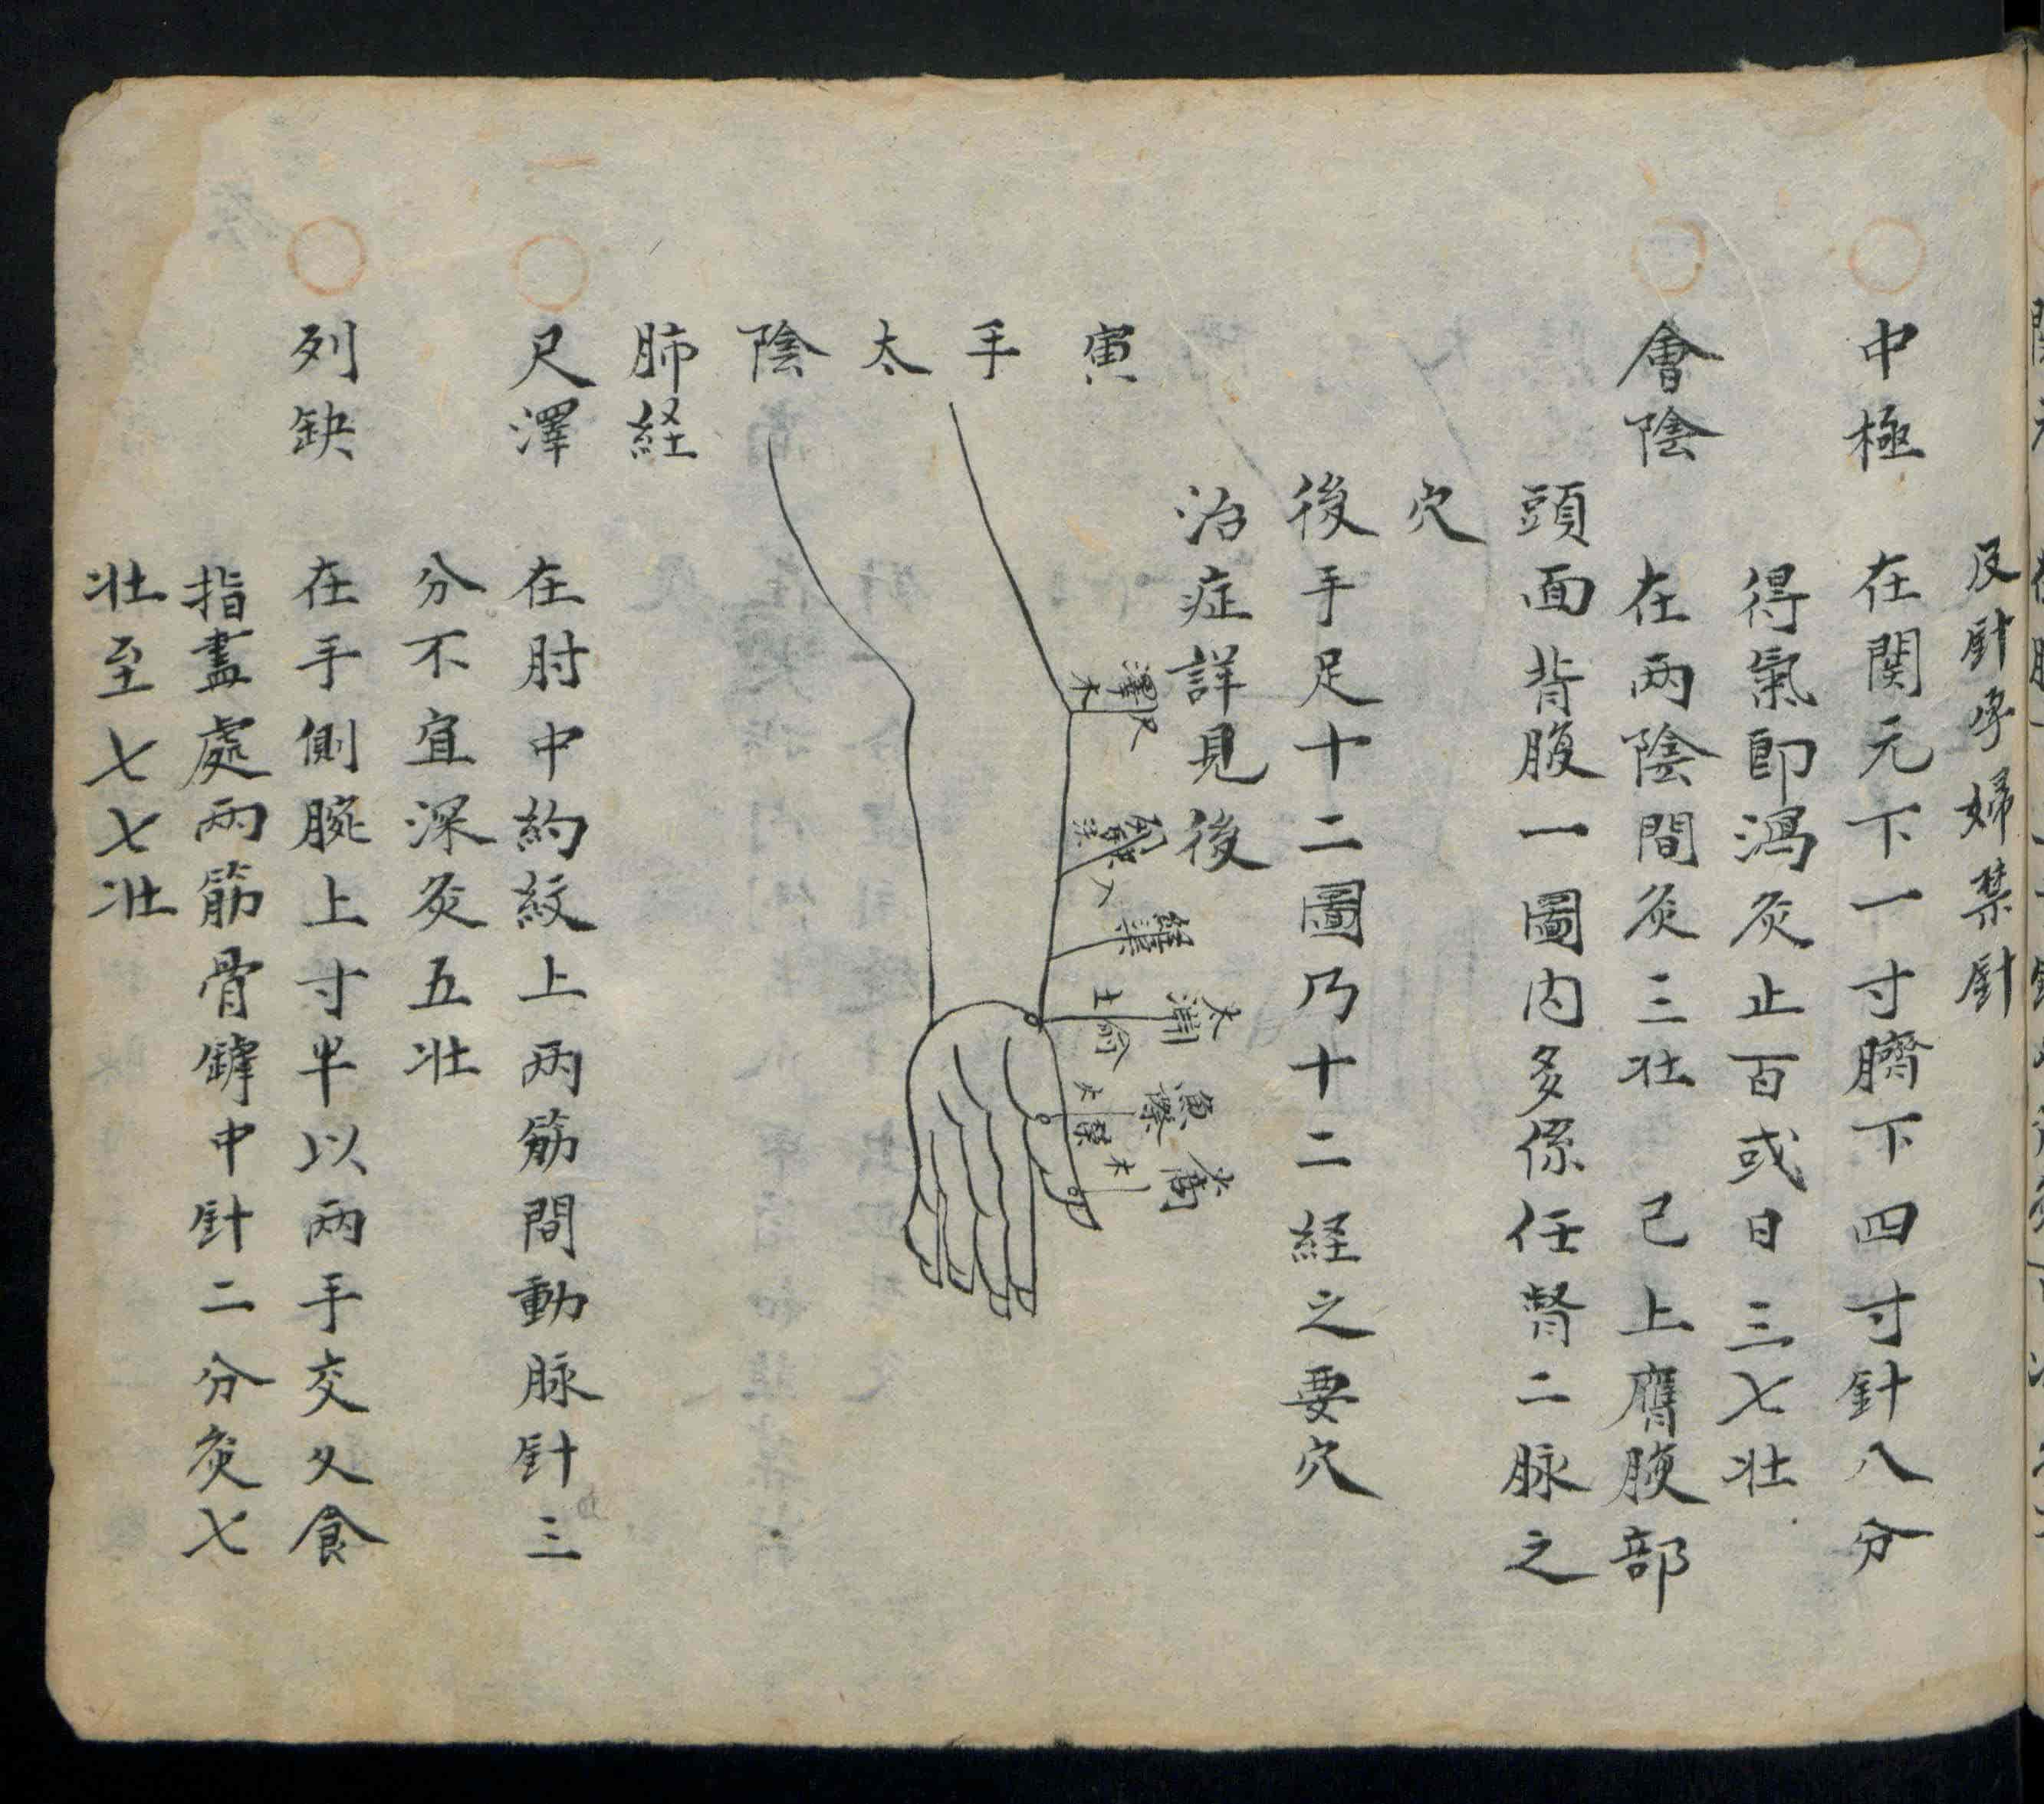 及針孕婦禁針
中極　在関元下一寸臍下四寸針八分
得氣即瀉灸止百或日三七壯
會陰　在兩陰間灸三壯　已上膺腹部
頭面背腹一圖内多係任督二脉之
穴
後手足十二圖乃十二経之要穴
治症詳見後
寅
手
太
陰
肺経
尺澤
列缺
経渠
太淵
土俞
魚際
尺澤　在肘中約紋上兩筋間動脉針三
分不宜深灸五壯
列缺　在手側腕上寸半以兩手交叉食
指盡處兩筋骨罅中針二分灸七
壯至七七壯